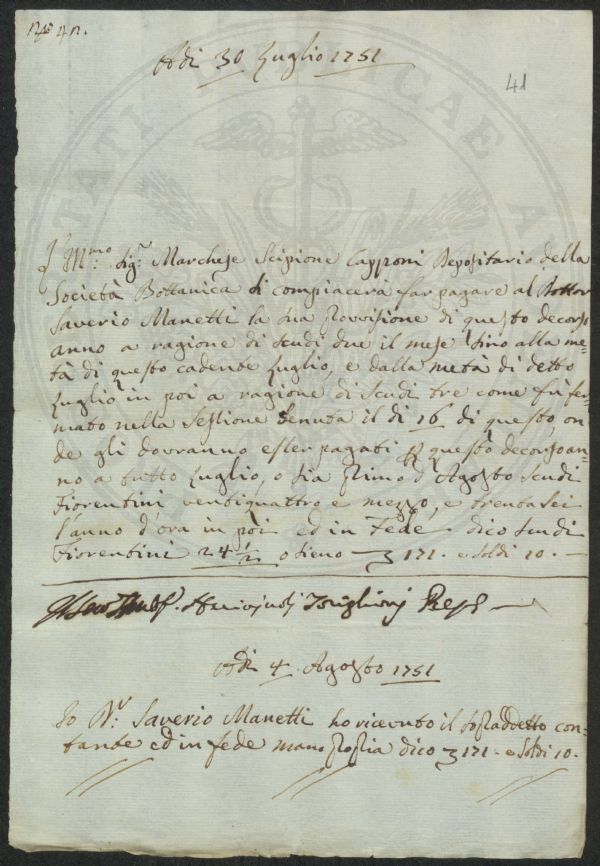 N° 42.
Adi 30 Luglio 1751
41
L'Ill.mo Sig.r Marchese Scipione Capponi Depositario della
Società Bottanica si compiacerà far pagare al Dottor
Saverio Manetti la sua provvisione di questo decorso
anno a ragione di scudi due il mese sino alla me-
tà di questo cadente Luglio, e dalla metà di detto
Luglio in poi a ragione di scudi tre come fu fer-
mato nella sessione tenuta il dì 16 di questo on-
de gli dovranno esser pagati p questo decorso an-
no a tutto Luglio, o sia primo d'Agosto scudi
Fiorentini ventiquattro e mezzo, e trentasei
l'anno d'ora in poi ed in Fede dico scudi
Fiorentini 24 1/2 o sieno 171. e soldi 10.
Adi 4 Agosto 1751
Io D.r Saverio Manetti ho ricevuto il sopraddetto con-
tante ed in fede mano propria dico 171. e soldi 10.